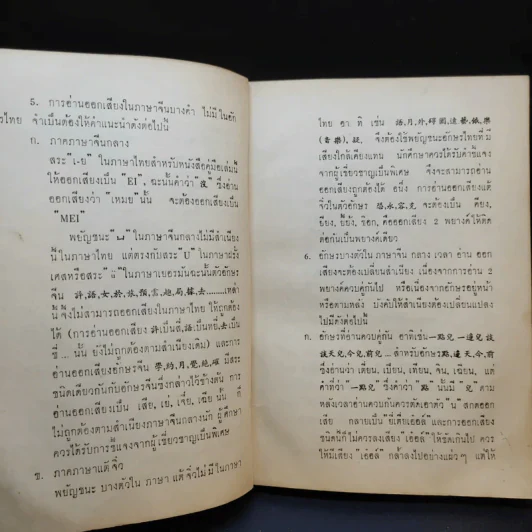 5. การอ่านออกเสียงในภาษาจีนบางคำ ไม่มีในอัก
รไทย จำเป็นต้องให้คำแนะนำดังต่อไปนี้
ก. ภาคภาษาจีนกลาง
สระ "เ-ย" ในภาษาไทยสำหรับหนังสือคู่มือเล่มนี้
ให้ออกเสียงเป็น "EI", ฉะนั้นคำว่า "没" ซึ่งอ่าน
ออกเสียงว่า "เหมย" นั้น จะต้องออกเสียงเป็น
"MEI"
พยัญชนะ "ㄩ" ในภาษาจีนกลางไม่มีสำเนียง
นี้ในภาษาไทย แต่ตรงกับสระ "U" ในภาษาฝรั่ง
เศสหรือสระ "ü" ในภาษาเยอรมันฉะนั้นตัวอักษร
จีน 許,語,女,於,旅,預,雲,趣,局,據,去........เหล่า
นี้ จึงไม่สามารถออกเสียงในภาษาไทย ให้ถูกต้อง
ได้ (การอ่านออกเสียง 許เป็นสี่,語เป็นหยี่,去เป็น
ชี่ ... นั้น ยังไม่ถูกต้องตามสำเนียงเดิม) และการ
อ่านออกเสียงอักษรจีน 學,約,月,覺,絕,確 มีสระ
ชนิดเดียวกันกับอักษรจีนซึ่งกล่าวไว้ข้างต้น การ
อ่านออกเสียงเป็น เสีย, เย่, เจี่ย, เฉีย นั้น ก็
ไม่ถูกต้องตามสำเนียงภาษาจีนกลางนัก ผู้ศึกษา
ควรได้รับการชี้แจงจากผู้เชี่ยวชาญเป็นพิเศษ
ข. ภาคภาษาแต้จิ๋ว
พยัญชนะ บางตัวใน ภาษา แต้จิ๋วไม่มีในภาษา
ไทย อาทิ เช่น 語,月,外,鱷圓,遠藝,銀,樂
(音樂),疑, จึงต้องใช้พยัญชนะอักษรไทยที่มี
เสียงใกล้เคียงแทน นักศึกษาควรได้รับคำชี้แจง
จากผู้เชี่ยวชาญเป็นพิเศษ จึงจะสามารถอ่าน
ออกเสียงถูกต้องได้ อนึ่ง การอ่านออกเสียงแต้
จิ๋วในตัวอักษร 啓,永,容,克 จะต้องเป็น
ต่อกันเป็นพยางค์เดียว
6. อักษรบางตัวใน ภาษาจีน กลาง เวลา อ่าน ออก
เสียงจะต้องเปลี่ยนสำเนียง เนื่องจากการอ่าน 2
พยางค์ควบคู่กันไป หรือเนื่องจากอักษรอยู่หน้า
หรือตามหลัง บังคับให้สำเนียงต้องเปลี่ยนแปลง
ไปมีดังต่อไปนี้
ก. อักษรที่อ่านควบคู่กัน อาทิเช่น 一點兒 一邊兒談
談天兒,今兒,前兒... สำหรับอักษร點,邊 天,今,前
ซึ่งอ่านว่า เตียน, เปียน, เทียน, จิน, เฉียน, แต่
คำที่ว่า "一點兒" ซึ่งคำว่า "點" นั้นมี "兒" ตาม
หลังเวลาอ่านควบกันควรตัดเอาตัว "น" สกดออก
เสีย กลายเป็น และการออกเสียง
ชนิดนี้ก็ไม่ควรลงเสียง "เอ๋อล์" ให้ชัดเกินไป ควร
ให้มีเสียง "เอ๋อล์" กล้ำลงไปอย่างแผ่วๆ แต่ให้